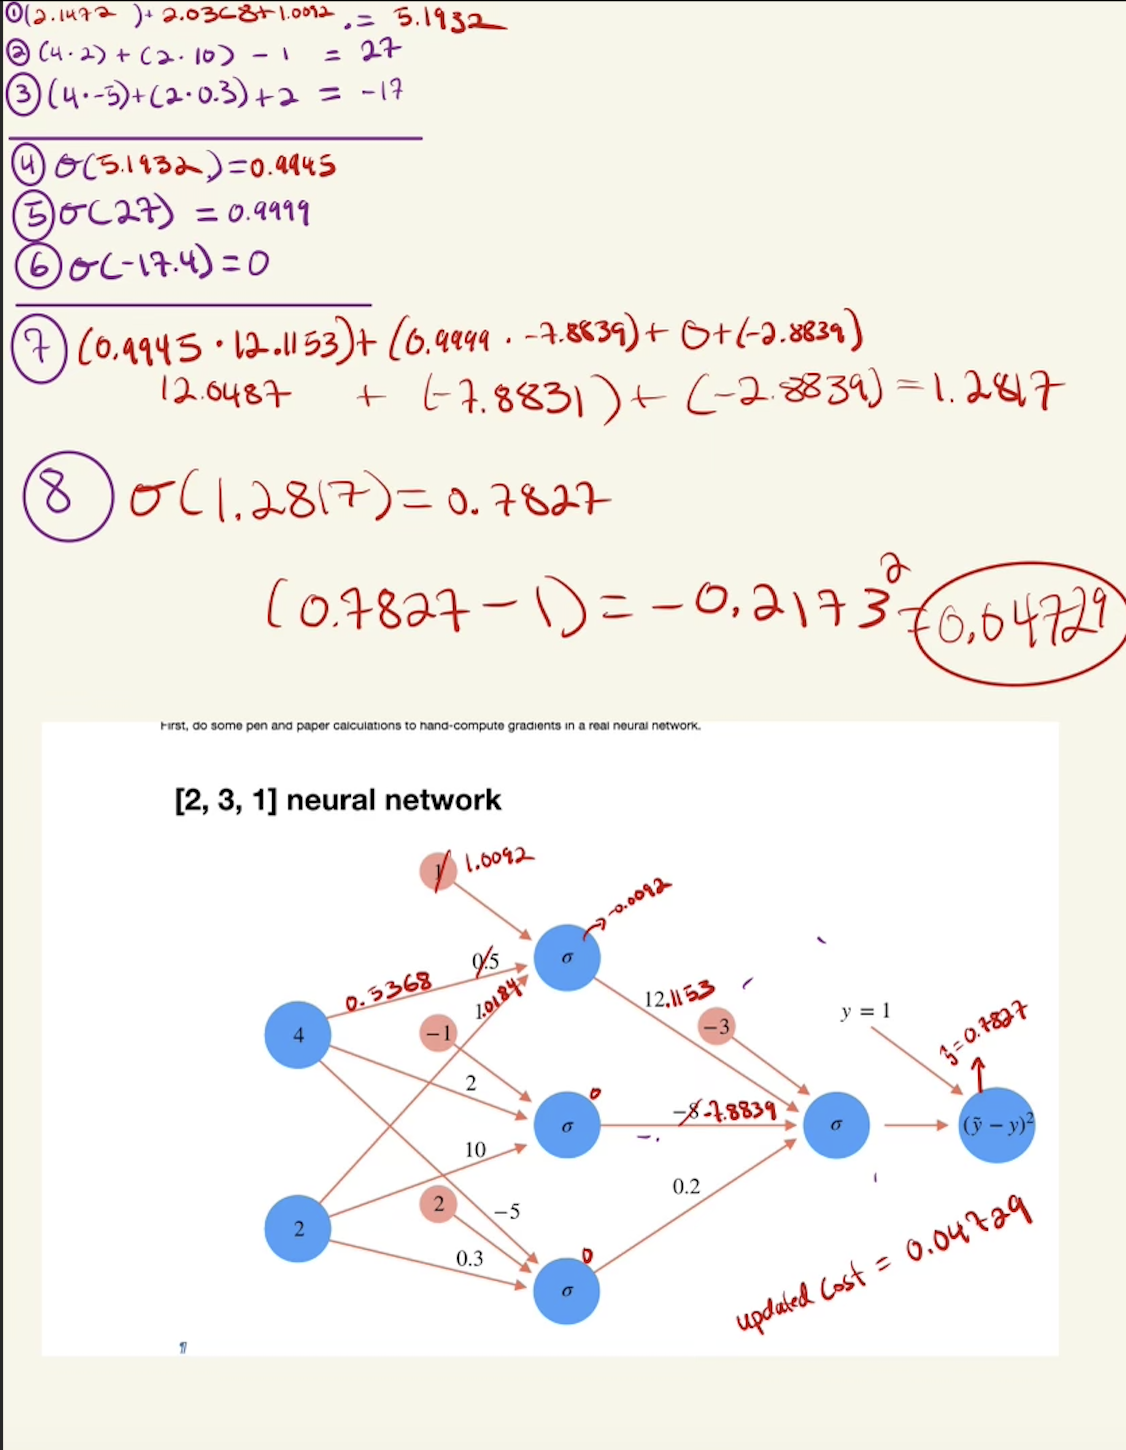 ①(2.1472 )+ 2.0368+1.0092 .= 5.1932
②(4·2)+(2·10) - 1 = 27
③(4·-5)+(2·0.3)+2 = -17
④ σ(5.1932)=0.9945
⑤ σ(27) = 0.9999
⑥ σ(-17.4)=0
⑦ (0.9945·12.1153)+(0.9999·-7.8839)+0+(-2.8839)
12.0487 + (-7.8831)+(-2.8839)=1.2817
⑧ σ(1.2817)=0.7827
(0.7827-1)=-0.2173²=0.04729
First, do some pen and paper calculations to hand-compute gradients in a real neural network.
[2, 3, 1] neural network
1 1.0092
-0.0092
0.5
σ
0.5368
1.0184
12.1153
4
−1
−3
y = 1
ŷ=0.7827
2
0
−8 -7.8839
σ
σ
(ỹ − y)²
10
2
−5
0.2
2
0.3
0
σ
updated cost = 0.04729
¶